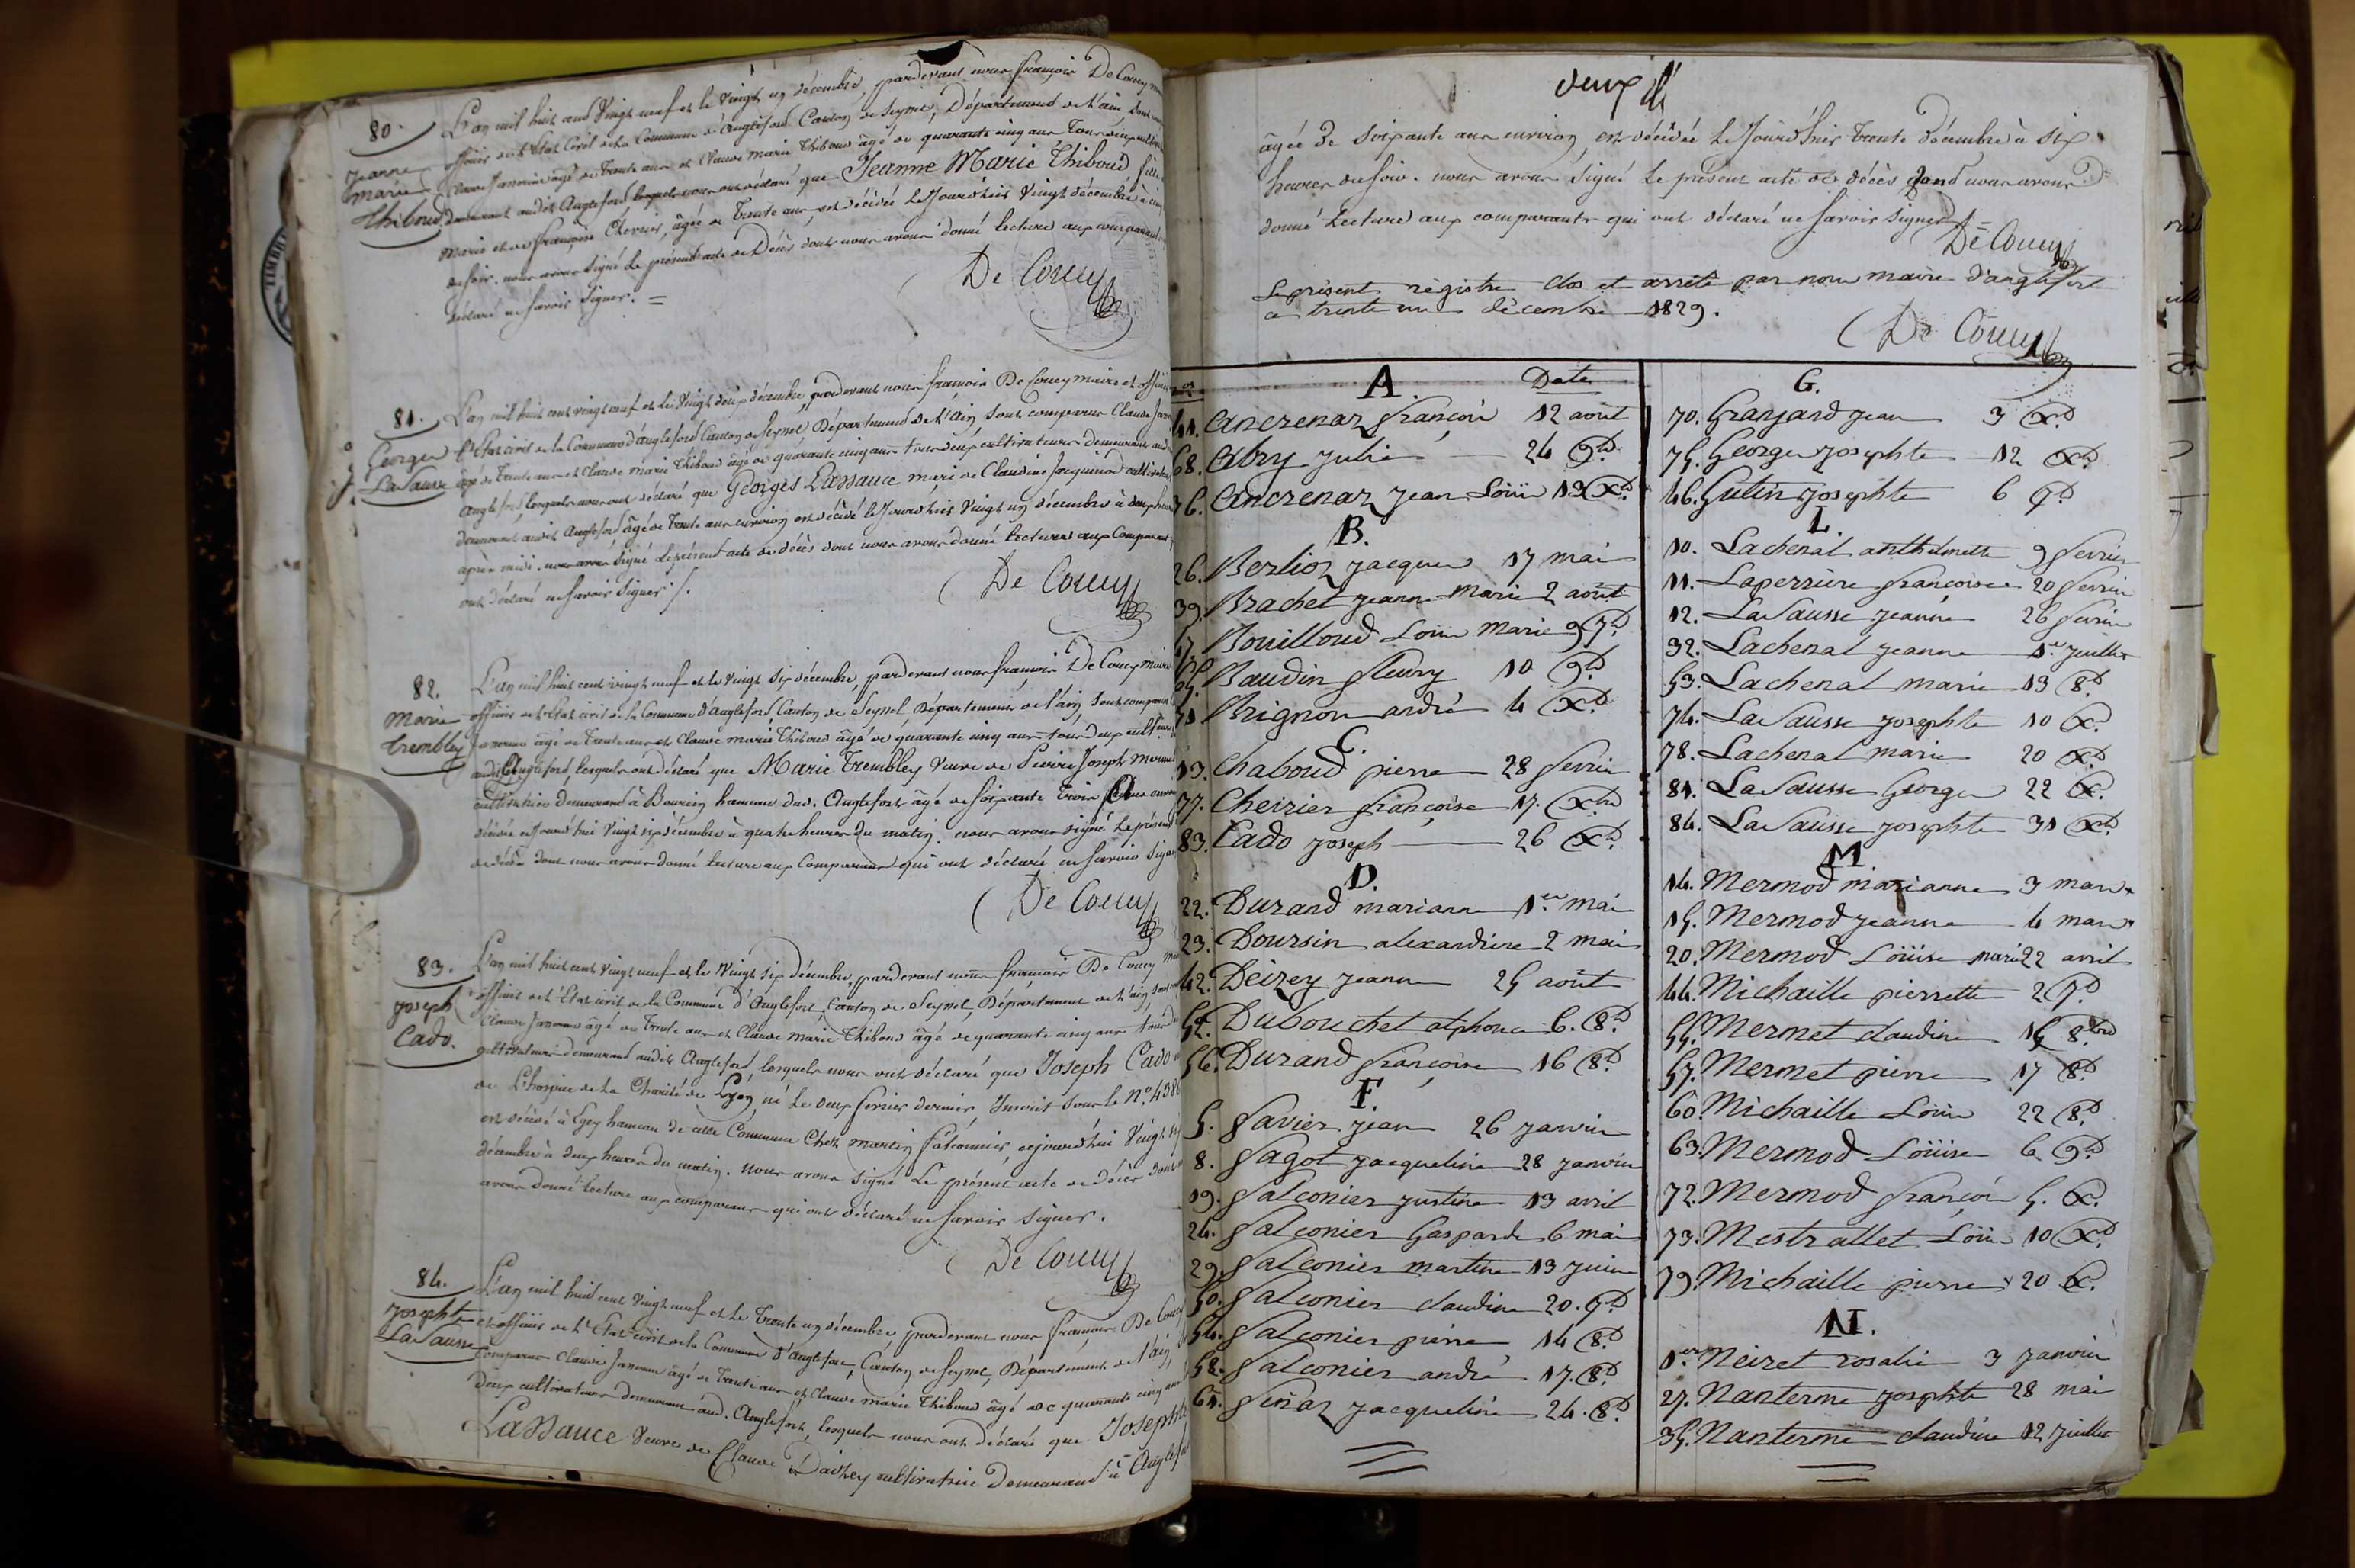 80.
Jeanne
Marie
Thiboud
L'an mil huit cent vingt neuf et le vingt un décembre, pardevant nous françois De Coucy
officier de l'état civil de la Commune d'Anglefort Canton de Seyssel, Département de l'ain
Claude Janome âgé de trente ans et Claude marie Thiboud âgé de quarante cinq ans Tous deux
demeurant audit Anglefort, lesquels nous ont déclaré que Jeanne Marie Thiboud, fille
Marie et de françoise Chevrier, âgée de trente ans, est décédée le Jourd'hui vingt décembre à cinq
du soir. nous avons signé le présent acte de Décès dont nous avons donné lecture aux comparants
déclaré ne savoir signer. =
De Coucy
81.
Georges
LaSausse
L'an mil huit cent vingt neuf et le vingt deux décembre, pardevant nous françois De Coucy maire et officier
l'état civil de la Commune d'anglefort Canton de Seyssel, Département de l'Ain, sont comparus Claude
âgé de trente ans et Claude marie Thiboud âgé de quarante cinq ans tous deux cultivateurs demeurant
Anglefort, lesquels nous ont déclaré que Georges Lassauce mari de Claudine Jacquinod
demeurant audit Anglefort, âgé de trente ans environ est décédé le Jourd'hui vingt un décembre à deux heures
après midi. nous avons signé le présent acte de décès dont nous avons donné lecture aux Comparants
ont déclaré ne savoir signer /.
De Coucy
82.
Marie
Trembley
L'an mil huit cent vingt neuf et le vingt six décembre, pardevant nous françois De Coucy maire
officier de l'état civil de la Commune d'Anglefort, Canton de Seyssel, Département de l'ain, sont comparus
âgé de trente ans et Claude marie Thiboud âgé de quarante cinq ans tous deux
audit Anglefort, lesquels ont déclaré que Marie Trembley veuve de Pierre Joseph
cultivatrice demeurant à hameau dud. Anglefort âgée de soixante trois
décédée ce Jourd'hui vingt six décembre à quatre heures du matin. nous avons signé le présent
de décès dont nous avons donné lecture aux Comparants qui ont déclaré ne savoir signer
De Coucy
83.
Joseph
Cado.
L'an mil huit cent vingt neuf et le vingt six décembre, pardevant nous françois De Coucy
officier de l'état civil de la Commune d'Anglefort, Canton de Seyssel, Département de l'ain,
Claude Janome âgé de trente ans et Claude marie Thiboud âgé de quarante cinq ans tous
cultivateurs demeurant audit Anglefort, lesquels nous ont déclaré que Joseph Cado
de L'hospice de la Charité de Lyon, né le deux février dernier Inscrit sous le N.º 438
est décédé à hameau de cette Commune Chez martin falconnier, cejourd'hui vingt
décembre à deux heures du matin. nous avons signé Le présent acte de décès dont
avons donné lecture aux comparans qui ont déclaré ne savoir signer.
De Coucy
84.
Josephte
LaSausse
L'an mil huit cent vingt neuf et le trente un décembre, pardevant nous françois De Coucy
et officier de l'état civil de la Commune d'Anglefort, Canton de Seyssel, Département de l'ain,
comparus Claude Janome âgé de trente ans et Claude marie Thiboud âgé de quarante cinq ans
deux cultivateurs demeurant aud. Anglefort, lesquels nous ont déclaré que Josephte
Lassauce veuve de Claude cultivatrice demeurant à Anglefort
deux
âgée de soixante ans environ, est décédée le Jourd'hui trente décembre à six
heures du soir. nous avons signé le présent acte de décès, dont nous avons
donné lecture aux comparants qui ont déclaré ne savoir signer./. =
De Coucy
Le présent registre clos et arrêté par nous maire d'anglefort
ce trente un décembre 1829.
De Coucy
A. Date
41. Ancrenaz françois 12 août
68. Abry Julie 24 9.b
76. Ancrenaz Jean Loüis 13 X.b
B.
26. Berlioz Jacques 17 mai
39. Brachet jeanne Marie 2 août
Bouilloud Loüis marie 9 7.b
65. Baudin fleury 10 9.b
71 Brignon andré 4 X.b
C.
13. Chaboud pierre 28 fevrier
77. Cheirier françoise 17. Xbre
83. Cado joseph 26 X.b
D.
22. Durand marianne 1.er mai
23. Doursin alexandrine 2 mai
42. Deizey jeanne 25 août
52. Dubouchet alphonse 6. 8.b
56. Durand françoise 16 8.b
F.
5. favier jean 26 janvier
8. fagot jacqueline 28 janvier
19. falconier justine 13 avril
24. falconier Gasparde 6 mai
29. falconier martine 13 juin
50. falconier claudine 20. 7.b
54. falconier pierre 14 8.b
58. falconier andré 17. 8.b
61. finaz jacqueline 24. 8.b
G.
70. Granjard jean 3 X.b
75. George josephte 12 X.b
46. Gutin josephte 6 7.b
L.
10. Lachenal anthelmette 9 fevrier
11. Laperriere françoise 20 fevrier
12. LaSausse jeanne 26 fevrier
32. Lachenal jeanne 1.er juillet
53. Lachenal marie 13 8.b
74. LaSausse josephte 10 X.b
78. Lachenal marie 20 X.b
81. LaSausse George 22 X.b
84. LaSausse josephte 31 X.b
M.
14. Mermod marianne 3 mars
15. Mermod jeanne 4 mars
20. Mermod Loüise marie 22 avril
44. Michaille pierrette 2 7.b
55. Mermet claudine 15 8.bre
57. Mermet pierre 17 8.b
60. Michaille Loüis 22 8.b
63. Mermod Loüise 6 9.b
72. Mermod françois 5. X.b
73. Mestrallet Loüis 10 X.b
79. Michaille pierre 20 X.b
N.
1.er Neizet rosalie 3 janvier
27. Nanterme josephte 28 mai
35. Nanterme claudine 12 juillet